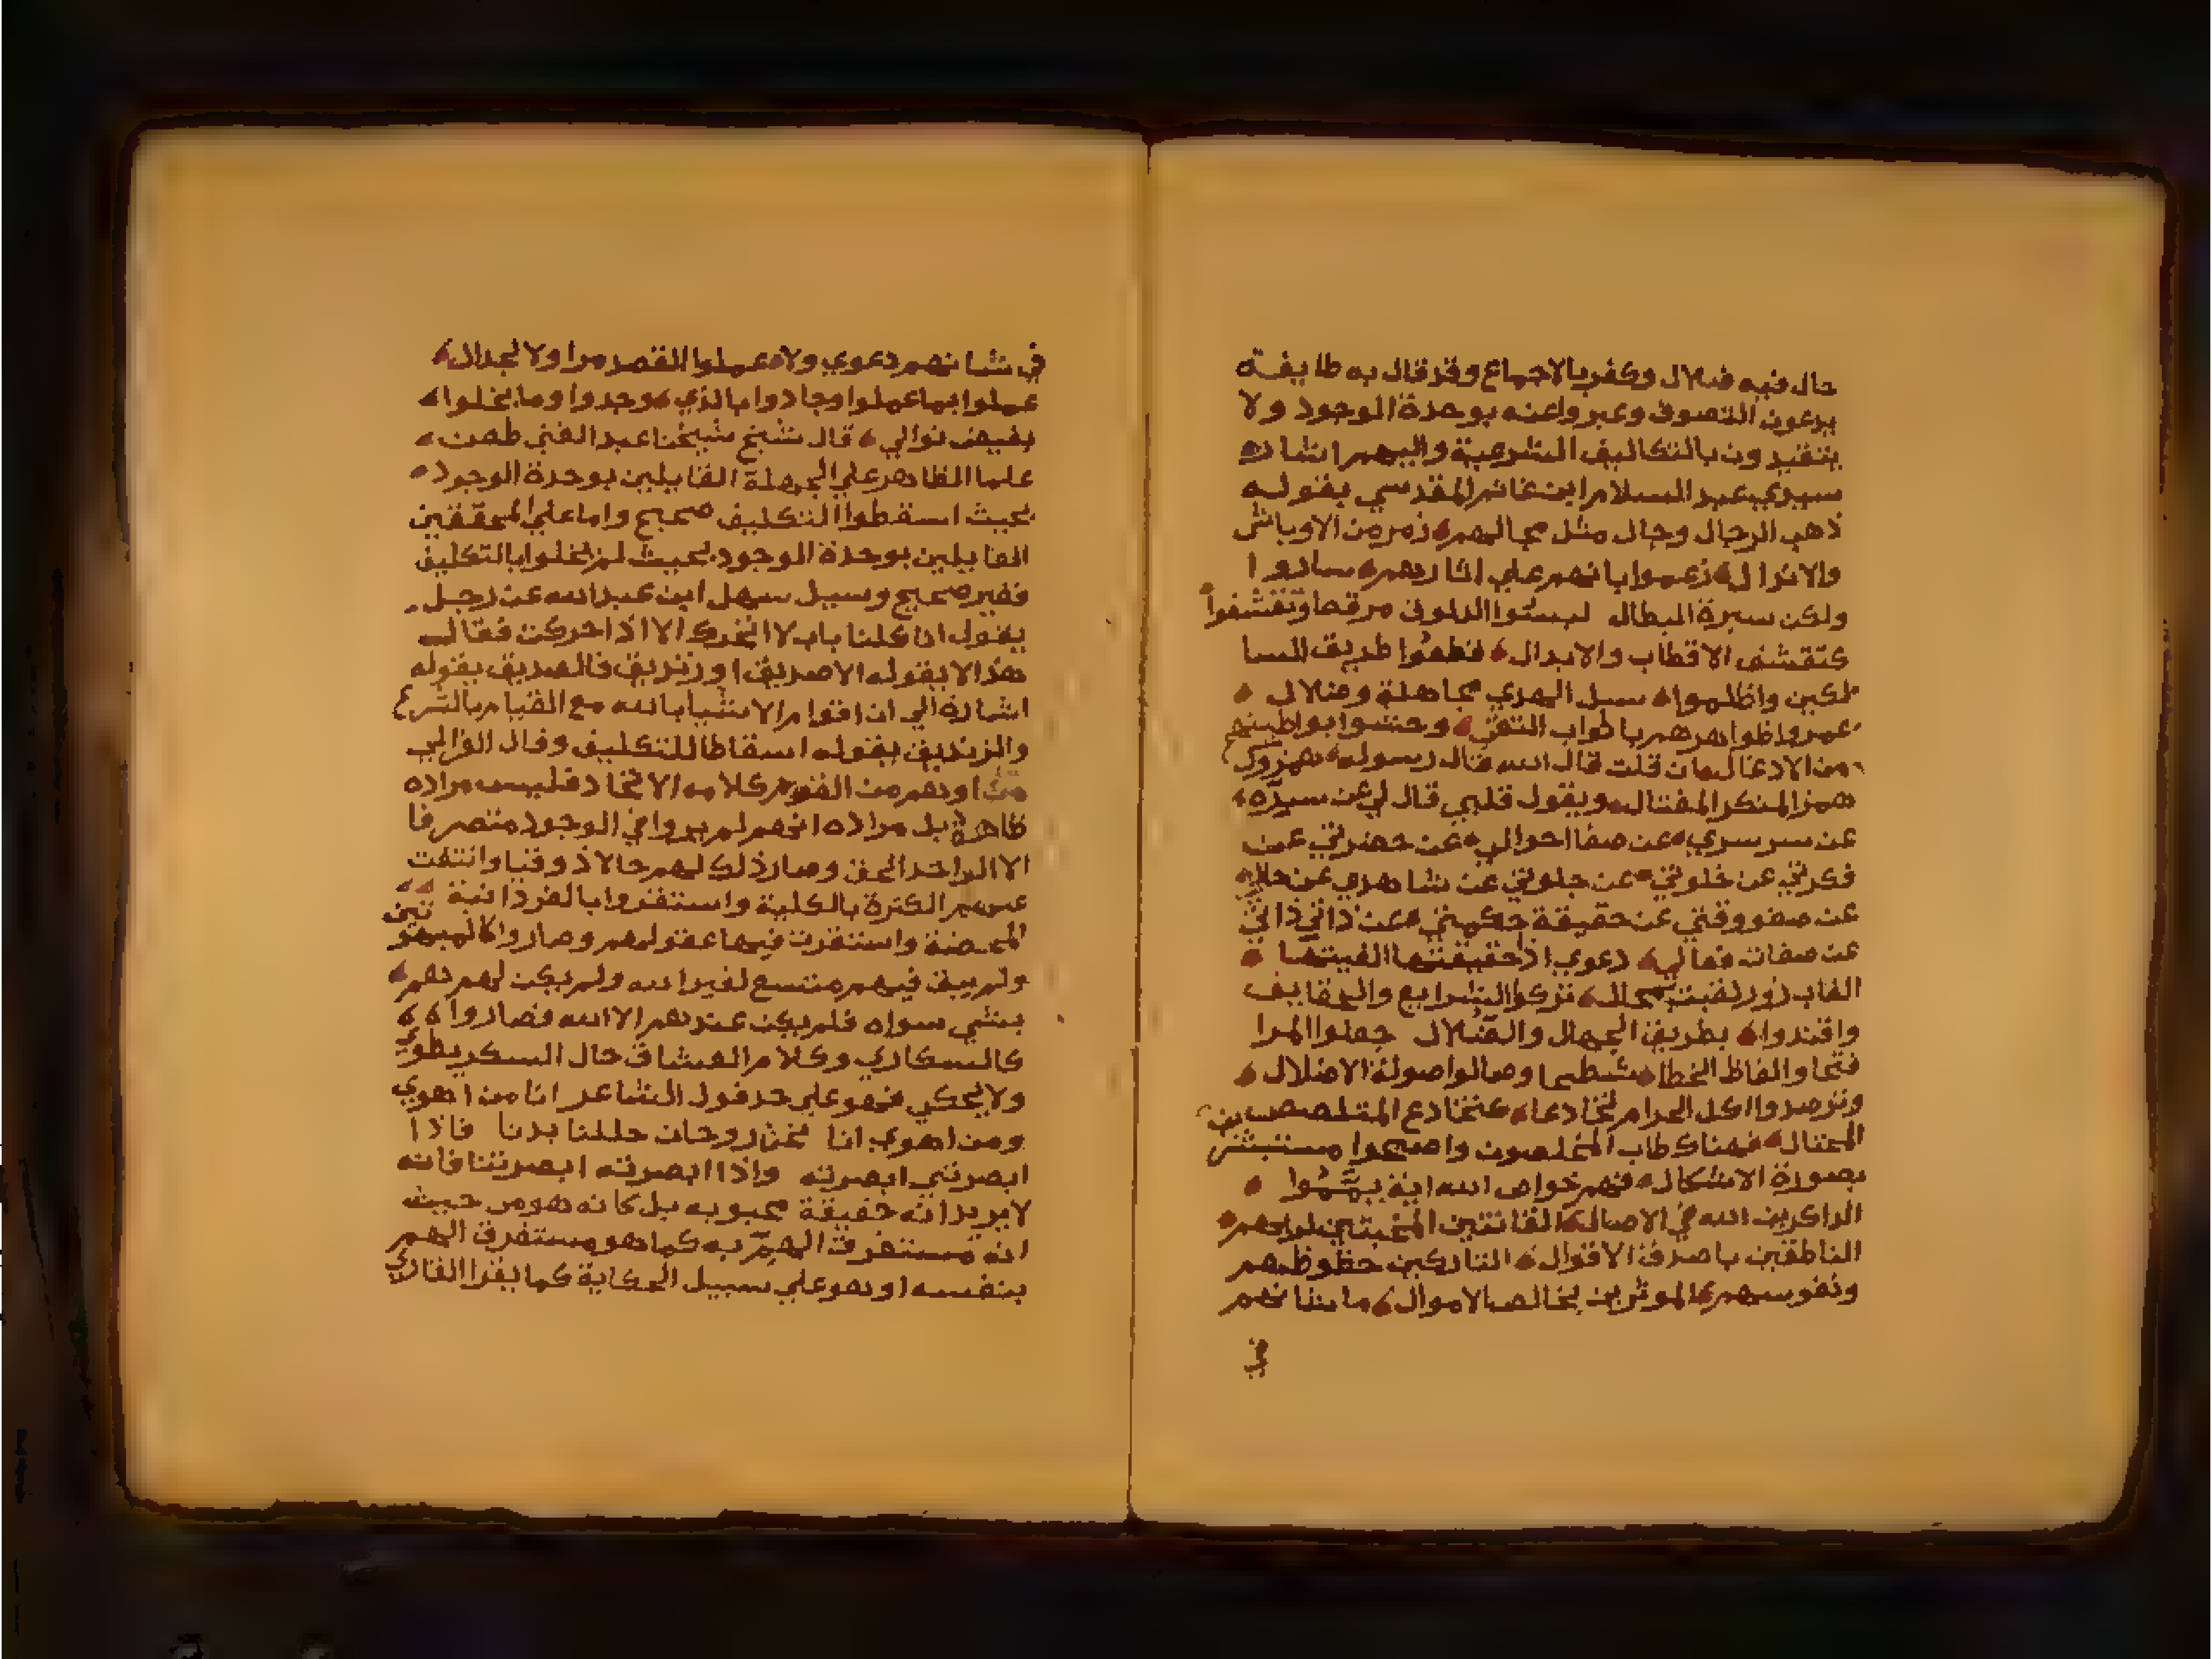 حال فيه ضلال وكفر بالاجماع وقد قال به طايفة
يدعون التصوف وعبروا عنه بوحدة الوجود ولا
يتقيدون بالتكاليف الشرعية واليهم اشاره
سيدي عبد السلام ابن غانم المقدسي بقوله
ذهب الرجال وحال مثل مجالهم زمر من الاوباش
والانزال زعموا بانهم علي اثارهم ساروا
ولكن سيرة البطال لبسوا الدلوق مرقعا وتقشفوا
كتقشف الاقطاب والابدال قطعوا طريق السا
لكين واظلموا سبل الهدي بجاهلة وضلال
عمروا ظواهرهم باثواب التقي وحشوا بواطنهم
من الادغال ان قلت قال الله قال رسوله همزوك
همز المنكر المغتال ويقول قلبي قال لي عن سره
عن سر سري عن صفا احوالي عن حضرتي عن
فكرتي عن خلوتي عن جلوتي عن شاهدي عن حالي
عن صفو وقتي عن حقيقة حكمتي عن ذاتي ذاتي
عن صفات فعالي دعوي اذا حققتها الفيتها
القاب زور لفقت بمحال تركوا الشرايع والحقايق
واقتدوا بطريق الجهال والضلال جعلوا المرا
فتحا والفاظ الخطا شطحا وصالوا صولة الاضلال
وترصدوا اكل الحرام تخادعا كتخادع المتلصص
المحتال فهناك طاب المخلصون واصبحوا مستبشرين
بصورة الاشكال فهم خواص الله اية يمموا
الذاكرين الله في الاصال القانتين المخبتين لربهم
الناطقين باصدق الاقوال التاركين حظوظهم
ونفوسهم الموثرين بخالص الاموال ما شانهم
في
في شانهم دعوي ولا عملوا القصد مرا ولا لجدال
عملوا بما عملوا وجادوا بالذي وجدوا وما بخلوا
بفيض نوالي قال شيخ شيخنا عبد الغني طعن
علما الظاهر علي الجهلة القايلين بوحدة الوجود
بحيث اسقطوا التكليف صحيح واما علي المحققين
القايلين بوحدة الوجود بحيث لم يخلوا بالتكليف
فغير صحيح وسيل سهل ابن عبد الله عن رجل
يقول انا كالباب لا اتحرك الا اذا حركت فقال
هذا لا يقوله الا صديق او زنديق فالصديق يقوله
اشارة الي ان اقوام الاشيا بالله مع القيام بالشرع
والزنديق يقوله اسقاطا للتكليف وقال الغزالي
من اوهم من القوم كلامه الاتحاد فليس مراده
ظاهره بل مراده انهم لم يروا في الوجود متصرفا
الا الواحد الحق وصار ذلك لهم حالا ذوقيا وانتفت
عنهم الكثرة بالكلية واستغرقوا بالفردانية
المحضة واستغرت فيها عقولهم وصاروا كالمبهوتين
ولم يبق فيهم متسع لغير الله ولم يكن لهم هم
بشي سواه فلم يكن عندهم الا الله فصاروا
كالسكاري وكلام العشاق حال السكر يطوي
ولا يحكي فهو علي حد قول الشاعر انا من اهوي
ومن اهوي انا نحن روحان حللنا بدنا فاذا
ابصرتني ابصرته واذا ابصرته ابصرتنا فانه
لا يريد انه حقيقة محبوبه بل كانه هو من حيث
انه مستغرق الهم به كما هو مستغرق الهم
بنفسه او هو علي سبيل الحكاية كما يقرا القاري